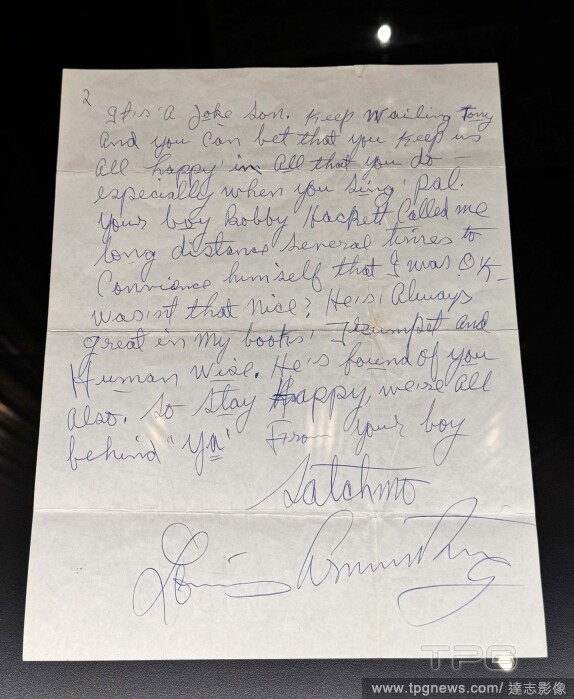 2
It's A Joke Son. Keep Wailing Tony
And you can bet that you Keep us
All happy in All that you do –
especially when you sing, pal.
Your boy Bobby Hackett Called me
long distance several times to
Convience himself that I was O.K.
wasn't that nice? He's Always
great in my books, Trumpet and
Human wise. He's found of you
Also. So stay Happy, we're All
behind "ya" From your boy
Satchmo
Louis Armstrong
TPG
www.tpgnews.com/ 達志影像